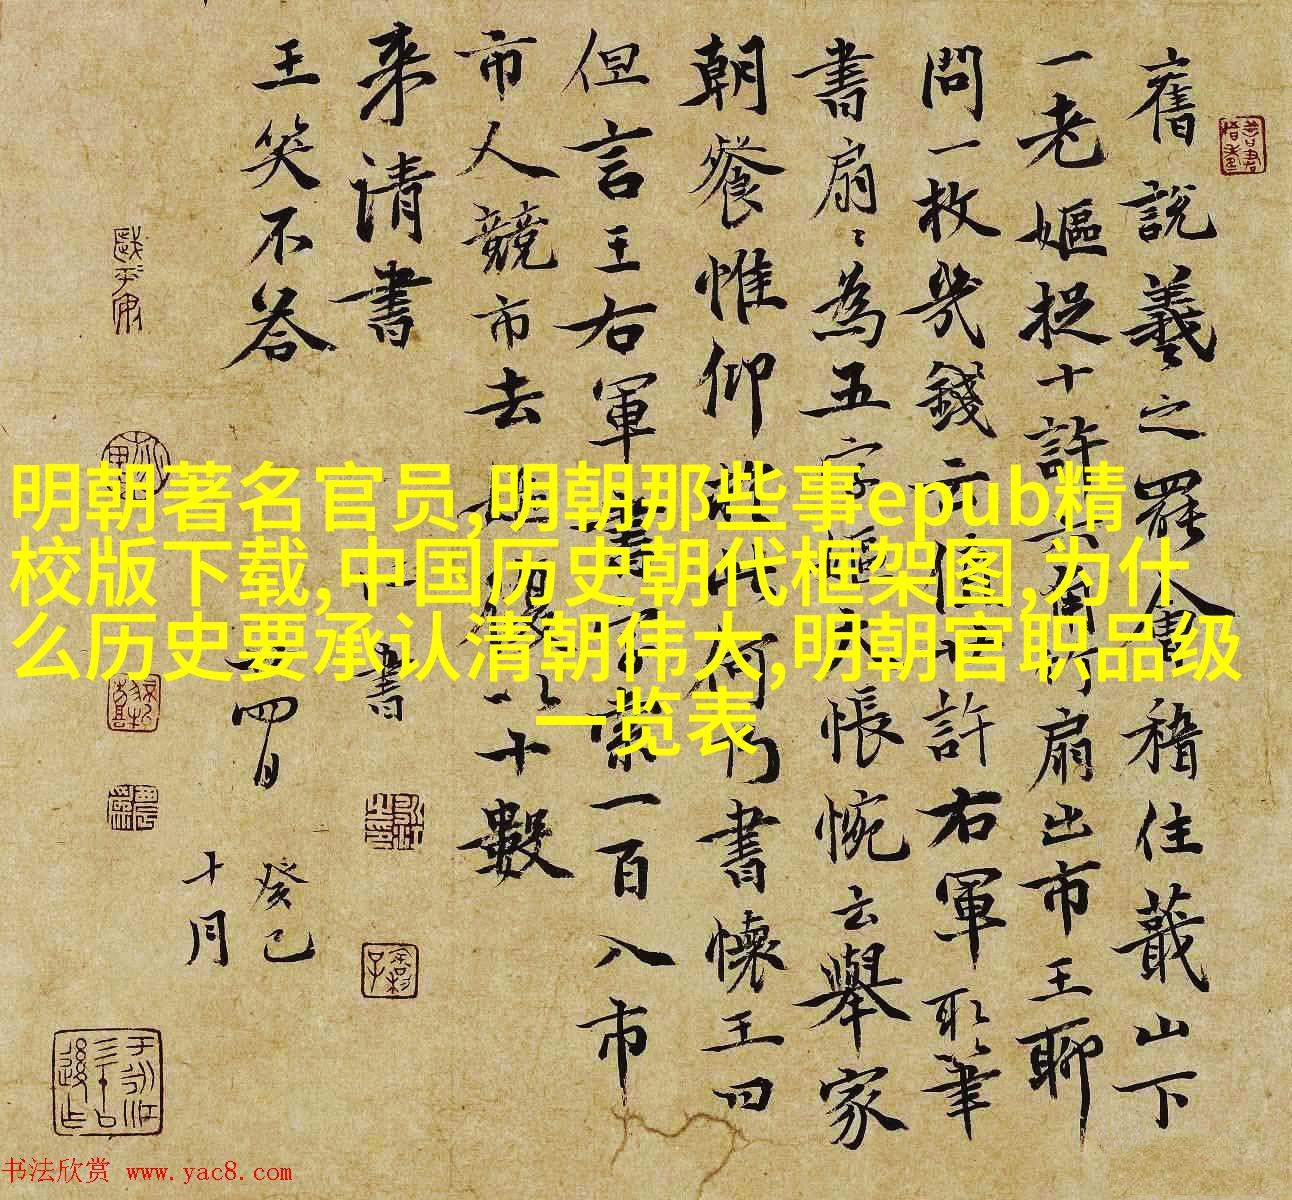 舊說羲之罷會稽住蕺山下
一老嫗捉十許六角竹扇出市王聊
問一枚幾錢云值廿許右軍取筆
書扇扇為五字嫗大悵惋云舉家
朝餐惟仰
書懷王曰
但言王右軍書
一百入市
市人競市去
以十數
来請書
王笑不答
書
四日
癸巳
十月
明朝著名官员,明朝那些事epub精
校版下载,中国历史朝代框架图,为什
么历史要承认清朝伟大,明朝官职品级
一览表
书法欣赏 www.yac8.com